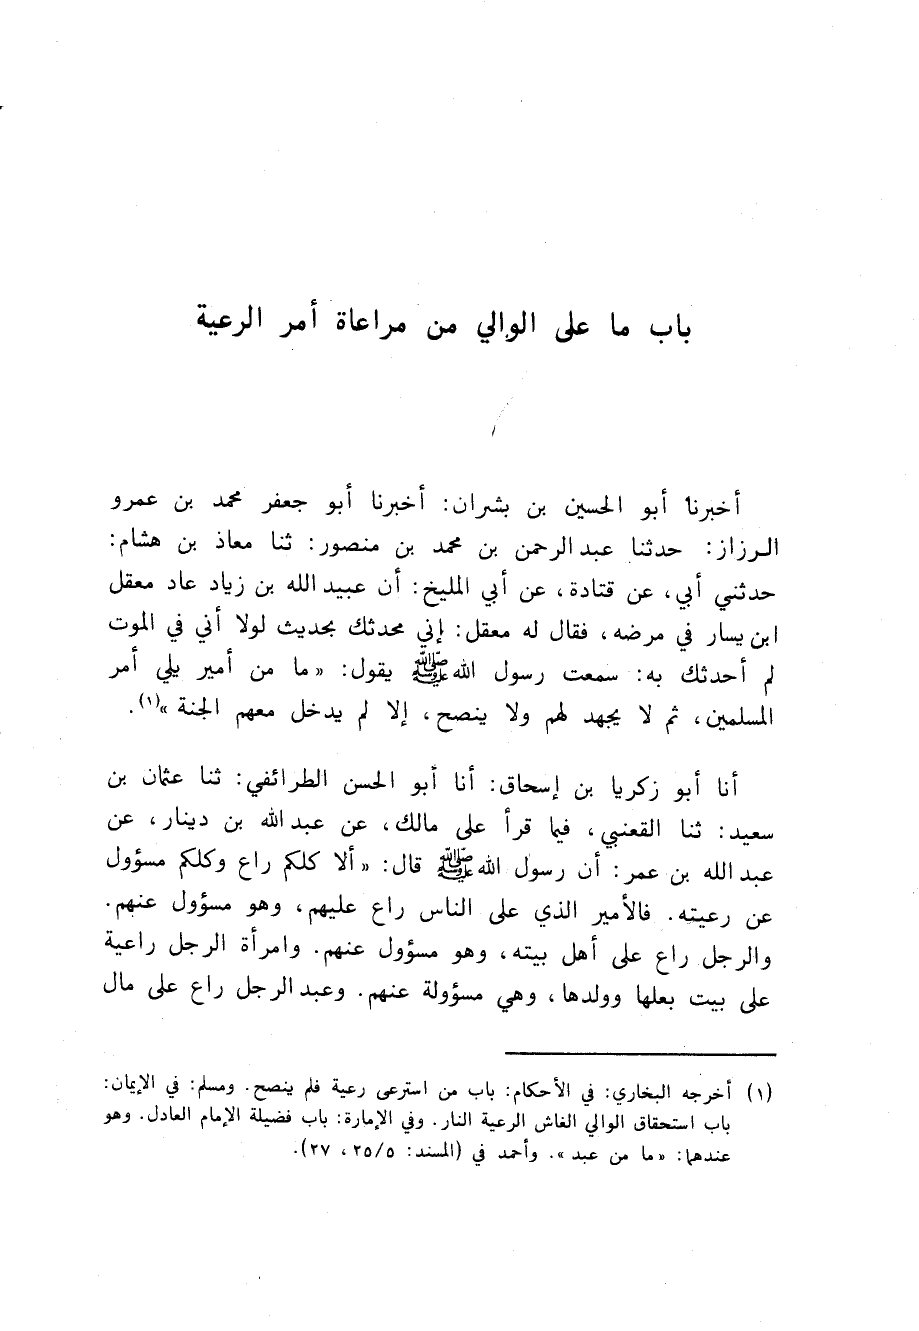 باب ما على الوالي من مراعاة أمر الرعية
أخبرنا أبو الحسين بن بشران: أخبرنا أبو جعفر محمد بن عمرو
الرزاز: حدثنا عبد الرحمن بن محمد بن منصور: ثنا معاذ بن هشام:
حدثني أبي، عن قتادة، عن أبي المليخ: أن عبيد الله بن زياد عاد معقل
ابن يسار في مرضه، فقال له معقل: إني محدثك بحديث لولا أني في الموت
لم أحدثك به: سمعت رسول الله ﷺ يقول: «ما من أمير يلي أمر
المسلمين، ثم لا يجهد لهم ولا ينصح، إلا لم يدخل معهم الجنة»(١).
أنا أبو زكريا بن إسحاق: أنا أبو الحسن الطرائفي: ثنا عثمان بن
سعيد: ثنا القعنبي، فيما قرأ على مالك، عن عبد الله بن دينار، عن
عبد الله بن عمر: أن رسول الله ﷺ قال: «ألا كلكم راع وكلكم مسؤول
عن رعيته. فالأمير الذي على الناس راع عليهم، وهو مسؤول عنهم.
والرجل راع على أهل بيته، وهو مسؤول عنهم. وامرأة الرجل راعية
على بيت بعلها وولدها، وهي مسؤولة عنهم. وعبد الرجل راع على مال
(١) أخرجه البخاري: في الأحكام: باب من استرعى رعية فلم ينصح. ومسلم: في الإيمان:
باب استحقاق الوالي الغاش الرعية النار. وفي الإمارة: باب فضيلة الإمام العادل. وهو
عندهما: «ما من عبد». وأحمد في (المسند: ٢٥/٥، ٢٧).